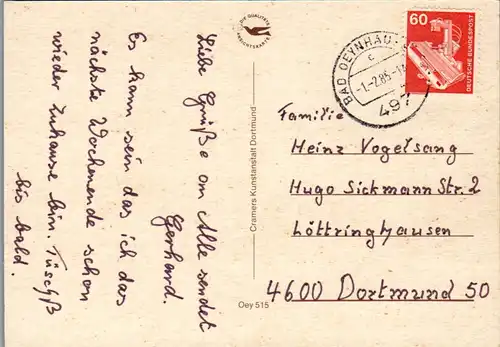 Liebe Grüße an Alle sendet
Gerhard.
Es kann sein das ich das
nächste Wochenende schon
wieder zuhause bin. Tüschß
bis bald.
DIE QUALITÄTS
ANSICHTSKARTE
Cramers Kunstanstalt Dortmund
Oey 515
60
DEUTSCHE BUNDESPOST
BAD OEYNHAU
c
-1.-7.85-1
497
Familie
Heinz Vogelsang
Hugo Sickmann Str. 2
Löttringhausen
4600 Dortmund 50